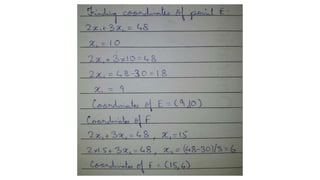 Finding coordinates of point E:
2x₁+3x₂=48
x₂=10
2x₁+3×10=48
2x₁=48-30=18
x₁=9
Coordinates of E=(9,10)
Coordinates of F
2x₁+3x₂=48, x₁=15
2×15+3x₂=48, x₂=(48-30)/3=6
Coordinates of F=(15,6)